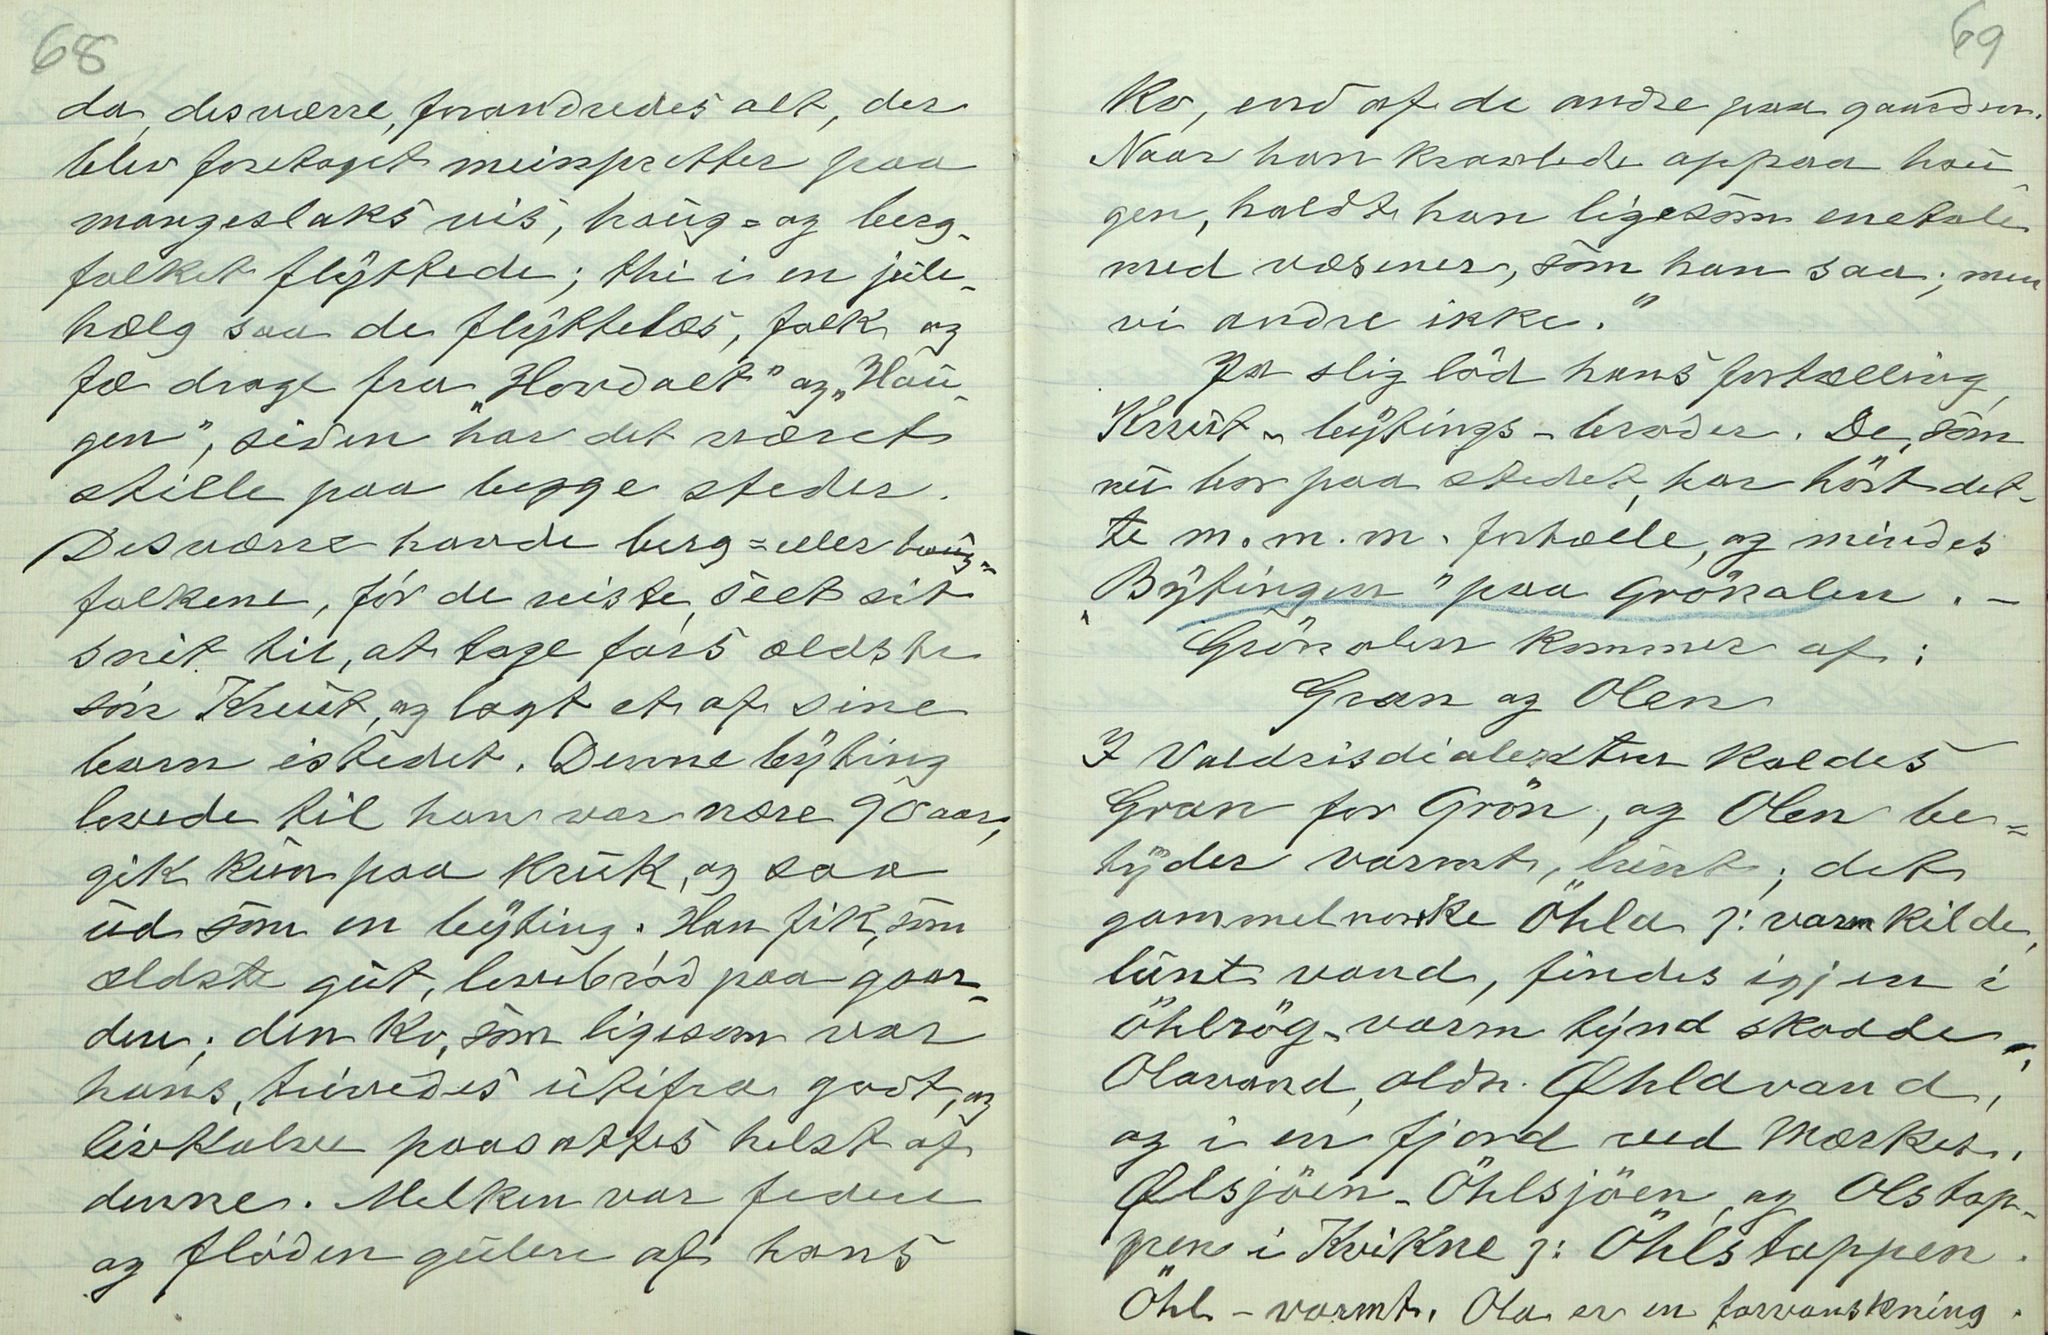 68
da, desværre, forandredes alt, der
blev foretaget meinspretter paa
mangeslaks vis, haug= og berg-
folket flyttede; thi i en jule-
hælg saa de flyttelæs, folk og
fæ drage fra „Hovdalt" og „Hau-
gen", siden har det været
stille paa begge steder.
Desværre havde berg= eller haug-
folkene, før de reiste, seet sit
snit til, at tage fars ældste
søn Knut, og lagt et af sine
barn istedet. Denne býting
levede til han var nære 90 aar,
gik kun paa kruk, og saa
ud som en býting. Han fik, som
ældste gut, levebrød paa gaar-
den; den ko, som ligesom var
hans, trivedes utifra godt, og
livkalve paasattes helst af
denne. Melken var federe
og fløden gulere af hans
69
ko, end af de andre paa gaarden.
Naar han kravlede oppaa hau-
gen, holdt han ligesom enetale
med væsener, som han saa; men
vi andre ikke."
Ja slig löd hans fortælling,
Knut-býtings-broder. De, som
nu bor paa stedet, har hört det-
te m. m. m. fortælle, og mindes
„Býtingen" paa Grönolen. —
Grönolen kommer af:
Gran og Olen
I Valdrisdialekten kaldes
Gran for Grön, og Olen be=
tyder varmt, lunt; det
gammelnorske Öhla ɔ: varm kilde,
lunt vand, findes igjen i
Öhlrög- varm tynd skodde-,
Olavand, oldn. Øhlavand,
og i en fjord ved Mærket,
Ølsjöen- Öhlsjöen, og Olstap-
pen i Kvikne ɔ: Öhlstappen.
Öhl - varmt. Ola er en forvanskning.